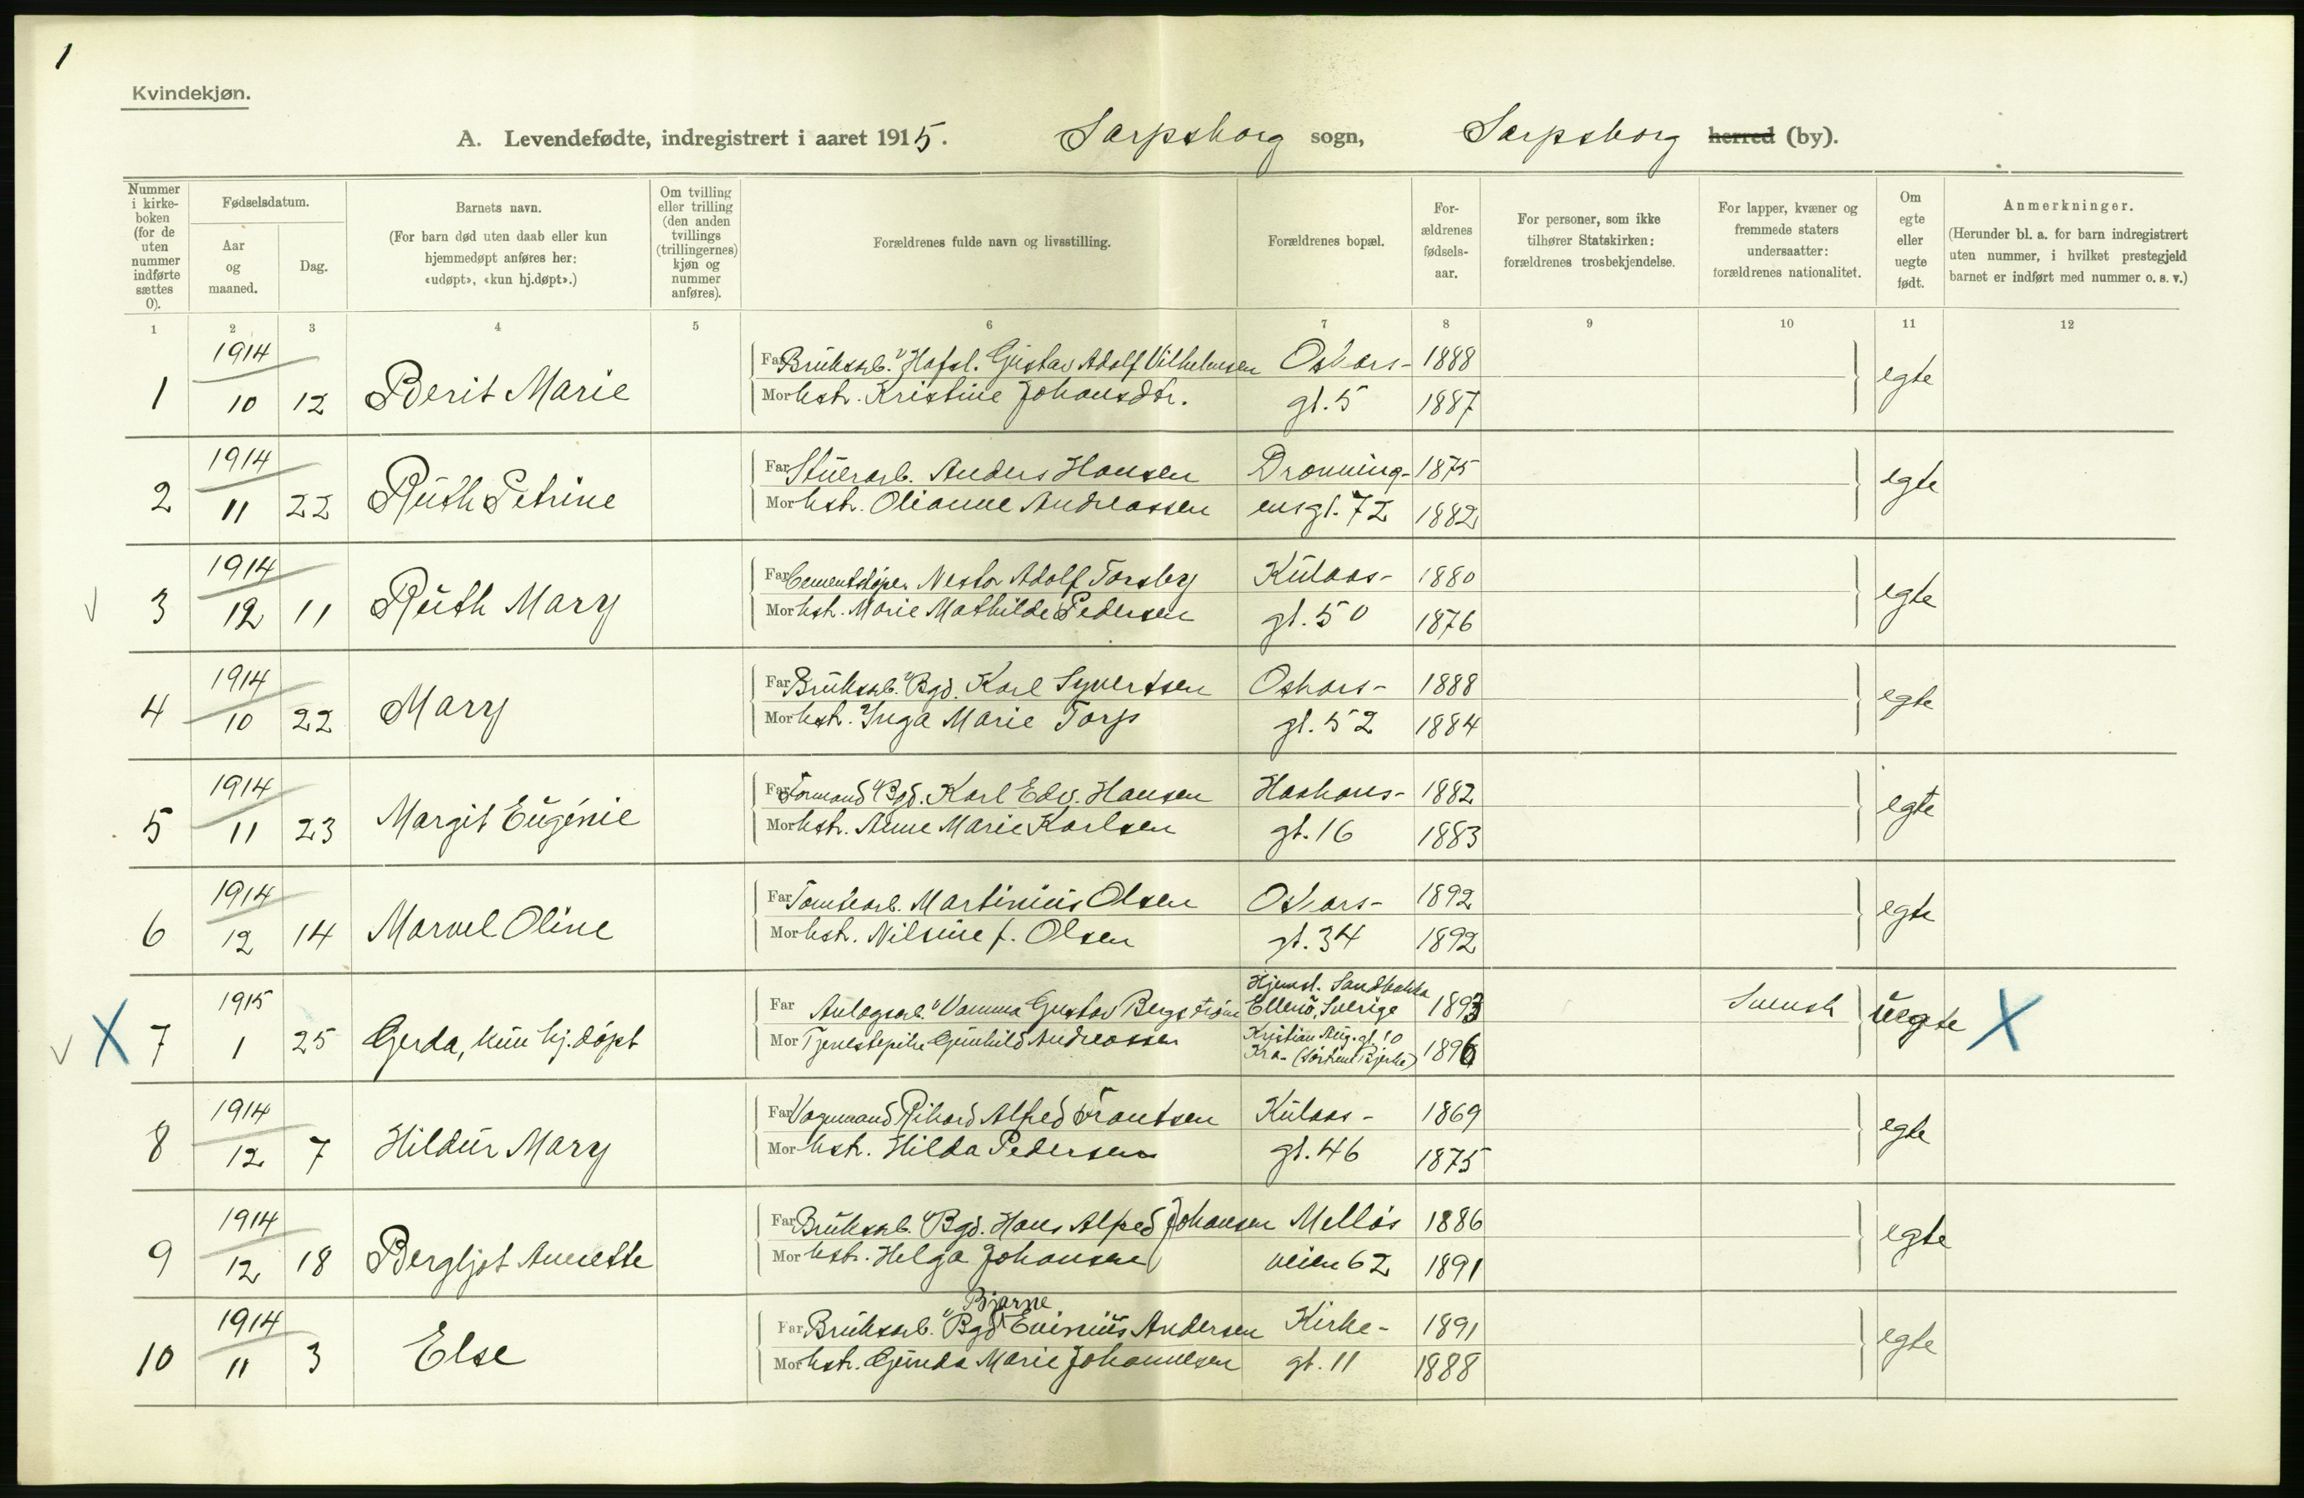 1
Kvindekjøn.
A. Levendefødte, indregistrert i aaret 1915. Sarpsborg sogn, Sarpsborg herred (by).
Nummer i kirkeboken (for de uten nummer indførte sættes 0).
Fødselsdatum.
Aar og maaned.
Dag.
Barnets navn.
(For barn død uten daab eller kun hjemmedøpt anføres her: «udøpt», «kun hj.døpt».)
Om tvilling eller trilling (den anden tvillings (trillingernes) kjøn og nummer anføres).
Forældrenes fulde navn og livsstilling.
Forældrenes bopæl.
Forældrenes fødselsaar.
For personer, som ikke tilhører Statskirken: forældrenes trosbekjendelse.
For lapper, kvæner og fremmede staters undersaatter: forældrenes nationalitet.
Om egte eller uegte født.
Anmerkninger.
(Herunder bl. a. for barn indregistrert uten nummer, i hvilket prestegjeld barnet er indført med nummer o. s. v.)
1 2 3 4 5 6 7 8 9 10 11 12
1 1914 10 12 Berit Marie Far Bruksarb. v/ Hafsl. Gustav Adolf Vilhelmsen Oskars- 1888 egte
Mor hstr. Kristine Johansdtr. gt. 5 1887
2 1914 11 22 Ruth Petrine Far Stuerarb. Anders Hansen Dronning- 1875 egte
Mor hstr. Olianne Andreassen ensgt. 72 1882
3 1914 12 11 Ruth Mary Far Cementstøper Nestor Adolf Torsberg Kulaas- 1880 egte
Mor hstr. Marie Mathilde Pedersen gt. 50 1876
4 1914 10 22 Mary Far Bruksarb. v/ Bgd. Karl Syvertsen Oskars- 1888 egte
Mor hstr. Inga Marie Torp gt. 52 1884
5 1914 11 23 Margit Eugénie Far Formand v/ Bgd. Karl Edv. Hansen Haakons- 1882 egte
Mor hstr. Anne Marie Karlsen gt. 16 1883
6 1914 12 14 Marvel Oline Far Tomtearb. Martinius Olsen Oskars- 1892 egte
Mor hstr. Nilsine f. Olsen gt. 34 1892
X 7 1915 1 25 Gerda, kun hj. døpt Far Anlægsarb. v/ Vamma Gustav Bergstrøm Hjemst. Sandbakka Ellenö, Sverige 1893 Svensk uegte X
Mor Tjenestepike Gunhild Andreassen Kristian Aug. gt. 10 Kra. 1896
8 1914 12 7 Hildur Mary Far Vognmand Rikard Alfred Frantsen Kulaas- 1869 egte
Mor hstr. Hilda Pedersen gt. 46 1875
9 1914 12 18 Bergljot Annette Far Bruksarb. v/ Bgd. Hans Alfred Johansen Melløs 1886 egte
Mor hstr. Helga Johansen veien 62 1891
Bjarne
10 1914 11 3 Else Far Bruksarb. v/ Bgd. Evinius Andersen Kirke- 1891 egte
Mor hstr. Gunda Marie Johannesen gt. 11 1888